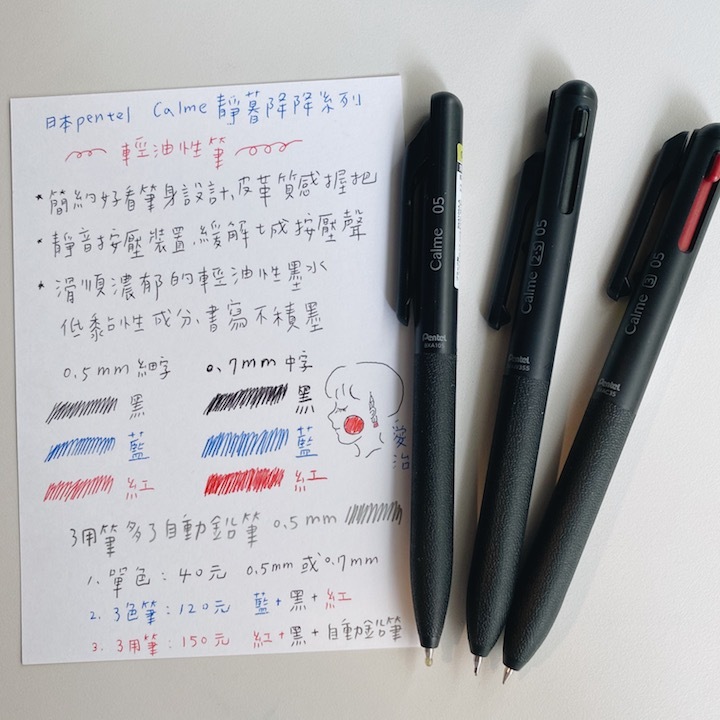 日本pentel Calme 靜暮降降系列
輕油性筆
* 簡約好看筆身設計、皮革質感握把
* 靜音按壓裝置、緩解七成按壓聲
* 滑順濃郁的輕油性墨水
低黏性成分、書寫不積墨
0.5mm 細字 0.7mm 中字
黑 黑
藍 藍
紅 紅
愛治
3用筆多了自動鉛筆 0.5mm
1. 單色：40元 0.5mm或0.7mm
2. 3色筆：120元 藍+黑+紅
3. 3用筆：150元 紅+黑+自動鉛筆
Calme 05
Pentel
BXA105
Calme 2+S 05
Pentel
Calme 3 05
Pentel